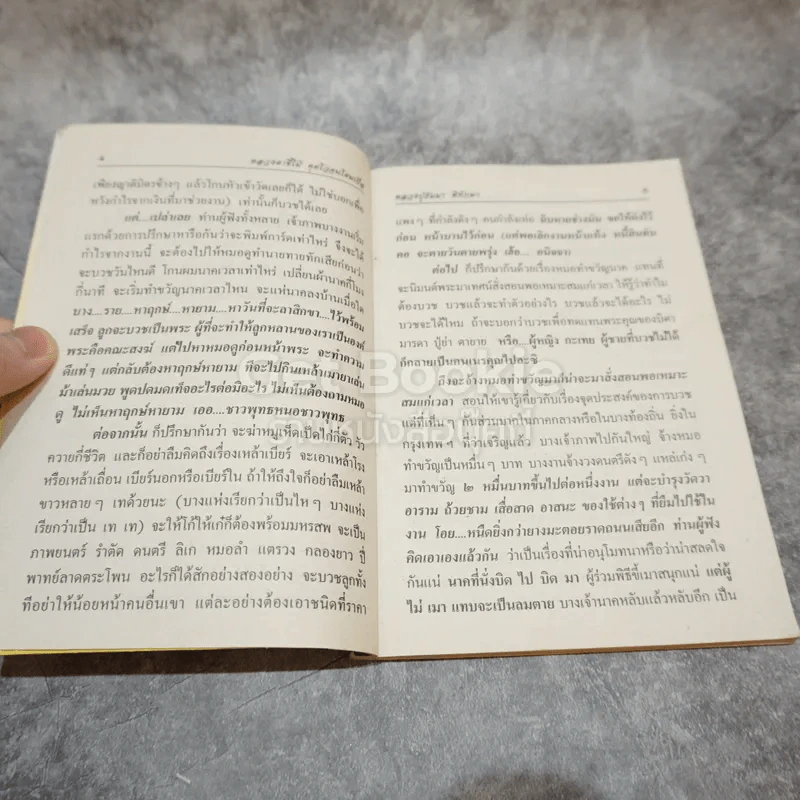 เพียงญาติมิตรข้างๆ แล้วโกนหัวเข้าวัดเลยก็ได้ ไม่ใช่บอกเพื่อ
หวังกำไรจากเงินที่มาช่วยงาน) เท่านั้นก็บวชได้เลย
แต่...เปล่าเลย ท่านผู้ฟังทั้งหลาย เจ้าภาพบางงานเริ่ม
แรกด้วยการปรึกษาหารือกันว่าจะพิมพ์การ์ดเท่าไหร่ จึงจะได้
กำไรจากงานนี้ จะต้องไปให้หมอดูทำนายทายทักเสียก่อนว่า
จะบวชวันไหนดี โกนผมนาคเวลาเท่าไหร่ เปลี่ยนผ้านาคกี่โมง
กี่นาที จะเริ่มทำขวัญนาคเวลาไหน จะแห่นาคลงบ้านเมื่อใด
บาง....ราย....หาฤกษ์....หายาม....หาวันที่จะลาสิกขา....ไว้พร้อม
เสร็จ ลูกจะบวชเป็นพระ ผู้ที่จะทำให้ลูกหลานของเราเป็นองค์
พระคือคณะสงฆ์ แต่ไปหาหมอดูก่อนหน้าพระ จะทำความ
ดีแท้ๆ แต่กลับต้องหาฤกษ์หายาม ทีจะไปกินเหล้าเมายาเล่น
ม้าเล่นมวย พูดปดมดเท็จอะไรต่อมิอะไร ไม่เห็นต้องถามหมอ
ดู ไม่เห็นหาฤกษ์หายาม เออ....ชาวพุทธหนอชาวพุทธ
ต่อจากนั้น ก็ปรึกษากันว่า จะฆ่าหมูเห็ดเป็ดไก่กี่ตัว วัว
ควายกี่ชีวิต และก็อย่าลืมคิดถึงเรื่องเหล้าเบียร์ จะเอาเหล้าโรง
หรือเหล้าเถื่อน เบียร์นอกหรือเบียร์ใน ถ้าให้ถึงใจก็อย่าลืมเหล้า
ขาวหลายๆ เทด้วยนะ (บางแห่งเรียกว่าเป็นไหๆ บางแห่ง
เรียกว่าเป็น เท เท) จะให้โก้ให้เก๋ก็ต้องพร้อมมหรสพ จะเป็น
ภาพยนตร์ รำตัด ดนตรี ลิเก หมอลำ แตรวง กลองยาว ปี่
พาทย์ลาดตระโพน อะไรก็ได้สักอย่างสองอย่าง จะบวชลูกทั้ง
ทีอย่าให้น้อยหน้าคนอื่นเขา แต่ละอย่างต้องเอาชนิดที่ราคา
แพงๆ ที่กำลังดังๆ คนกำลังเห่อ
ก่อน หน้าบานไว้ก่อน (แต่พอเลิกงานหน้าแห้ง หนี้สินท่วม
คอ จะตายวันตายพรุ่ง เฮ้อ... อนิจจา)
ต่อไป ก็ปรึกษากันด้วยเรื่องหมอทำขวัญนาค แทนที่
จะนิมนต์พระมาเทศน์สั่งสอนพอเหมาะสมแก่เวลา ให้รู้ว่าทำไม
ต้องบวช บวชแล้วจะทำตัวอย่างไร บวชแล้วจะได้อะไร ไม่
บวชได้ไหม ถ้าจะบอกว่าบวชเพื่อทดแทนพระคุณของบิดา
มารดา ปู่ย่า ตายาย หรือ...ผู้หญิง กะเทย ผู้ชายที่บวชไม่ได้
ก็กลายเป็นคนเนรคุณไปสะซิ
ถึงจะจ้างหมอทำขวัญมาก็น่าจะมาสั่งสอนพอเหมาะ
สมแก่เวลา สอนให้เขารู้เกี่ยวกับเรื่องจุดประสงค์ของการบวช
แต่ที่เป็นๆ กันส่วนมากในภาคกลางหรือในบางท้องถิ่น ยิ่งใน
กรุงเทพฯ ที่ว่าเจริญแล้ว บางเจ้าภาพไปกันใหญ่ จ้างหมอ
ทำขวัญเป็นหมื่นๆ บาท บางงานจ้างวงดนตรีดังๆ แหล่เก่งๆ
มาทำขวัญ ๒ หมื่นบาทขึ้นไปต่อหนึ่งงาน แต่จะบำรุงวัดวา
อาราม ถ้วยชาม เสื่อสาด อาสนะ ของใช้ต่างๆ ที่ยืมไปใช้ใน
งาน โอย....หนืดยิ่งกว่ายางมะตอยราดถนนเสียอีก ท่านผู้ฟัง
คิดเอาเองแล้วกัน ว่าเป็นเรื่องที่น่าอนุโมทนาหรือว่าน่าสลดใจ
กันแน่ นาคที่นั่งบิด ไป บิด มา ผู้ร่วมพิธีขี้เมาสนุกแน่ แต่ผู้
ไม่ เมา แทบจะเป็นลมตาย บางเจ้านาคหลับแล้วหลับอีก เป็น